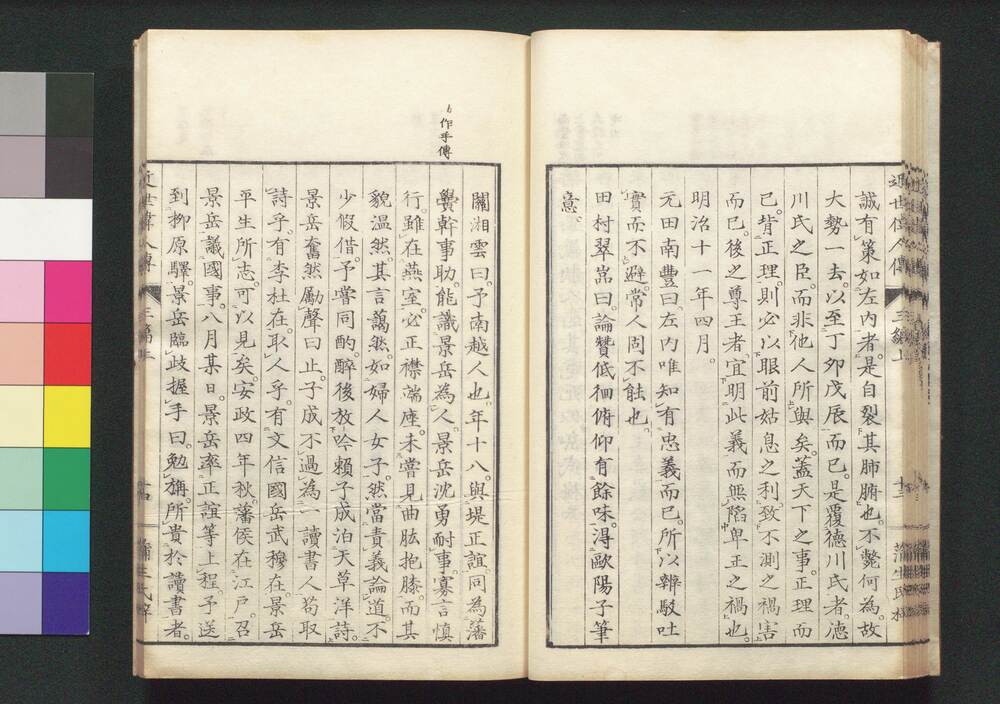 近世偉人傳 三編上 十三 蒲生氏梓
誠有策如左内者。是自裂其肺腑也。不斃何為。故
大勢一去。以至丁卯戊辰而已。是覆德川氏者。德
川氏之臣。而非他人所與矣。蓋天下之事。正理而
已。背正理則必以眼前姑息之利。致不測之禍害
而已。後之尊王者。宜明此義而無陷卑王之禍也。
明治十一年四月。
元田南豐曰。左内唯知有忠義而已。所以辨駁吐
實而不避。常人固不能也。
田村翠嵓曰。論贊低徊俯仰有餘味。得歐陽子筆
意。
作手傳
關湘雲曰。予南越人也。年十八。與堤正誼同為藩
黌幹事助。能識景岳為人。景岳沈勇耐事。寡言慎
行。雖在燕室。必正襟端座。未嘗見曲肱抱膝。而其
貌溫然。其言藹然。如婦人女子。然當責義論道。不
少假借。予嘗同酌。醉後放吟賴子成泊天草洋詩。
景岳奮然勵聲曰。止。子成不過為一讀書人。苟取
詩乎。有李杜在。取人乎。有文信國岳武穆在。景岳
平生所志。可以見矣。安政四年秋。藩侯在江戶。召
景岳議國事。八月某日。景岳率正誼等上程。予送
到柳原驛。景岳臨歧握手曰。勉旃。所貴於讀書者。
近世偉人傳 三編上 十四 蒲生氏梓